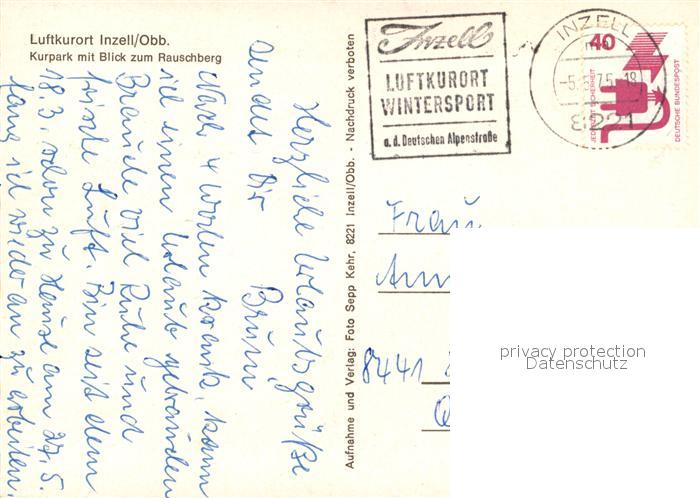 Luftkurort Inzell/Obb.
Kurpark mit Blick zum Rauschberg
Herzliche Urlaubsgrüße
sendet Dir Brüni
Nach 4 Wochen krank, kann
ich einen Urlaub gebrauchen
Brauche viel Ruhe und
frische Luft. Bin seit dem
18.3. schon zu Hause am 27.5.
fang ich wieder an zu arbeiten.
Aufnahme und Verlag: Foto Sepp Kehr, 8221 Inzell/Obb. - Nachdruck verboten
Inzell
LUFTKURORT
WINTERSPORT
a. d. Deutschen Alpenstraße
INZELL
75.-18
8221
40
JEDERZEIT SICHERHEIT
DEUTSCHE BUNDESPOST
Frau
8441
privacy protection
Datenschutz